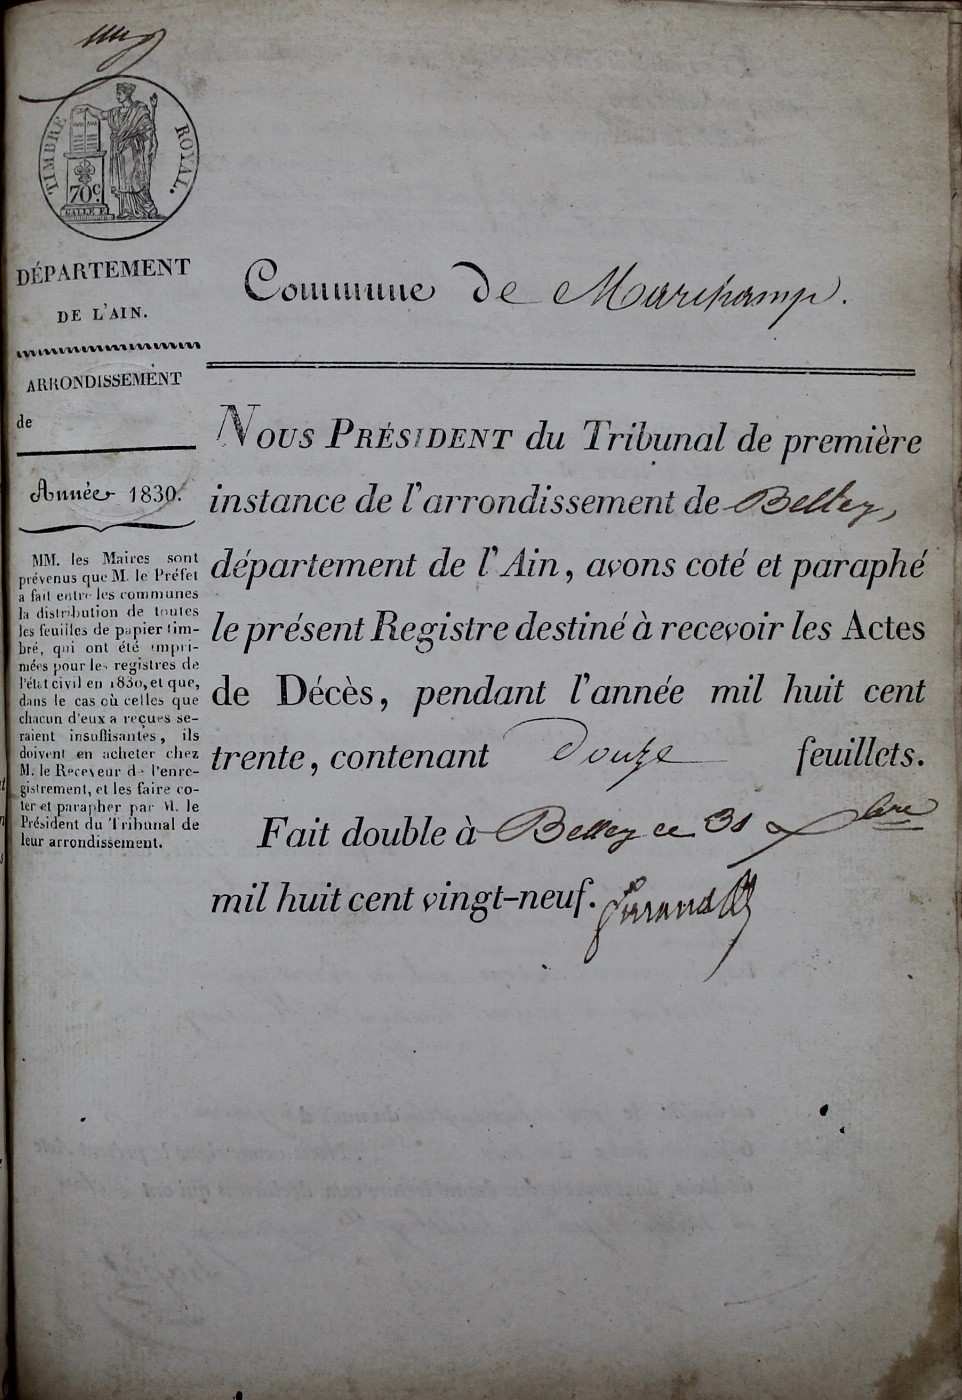 TIMBRE ROYAL.
70c.
GALLE F.
DÉPARTEMENT
DE L'AIN.
ARRONDISSEMENT
de
Année 1830.
MM. les Maires sont
prévenus que M. le Préfet
a fait entre les communes
la distribution de toutes
les feuilles de papier tim-
bré, qui ont été impri-
mées pour les registres de
l'état civil en 1830, et que,
dans le cas où celles que
chacun d'eux a reçues se-
raient insuffisantes, ils
doivent en acheter chez
M. le Receveur de l'enre-
gistrement, et les faire co-
ter et parapher par M. le
Président du Tribunal de
leur arrondissement.
Commune de Marchamp.
NOUS PRÉSIDENT du Tribunal de première
instance de l'arrondissement de Belley,
département de l'Ain, avons coté et paraphé
le présent Registre destiné à recevoir les Actes
de Décès, pendant l'année mil huit cent
trente, contenant Douze feuillets.
Fait double à Belley ce 31 Xbre
mil huit cent vingt-neuf.